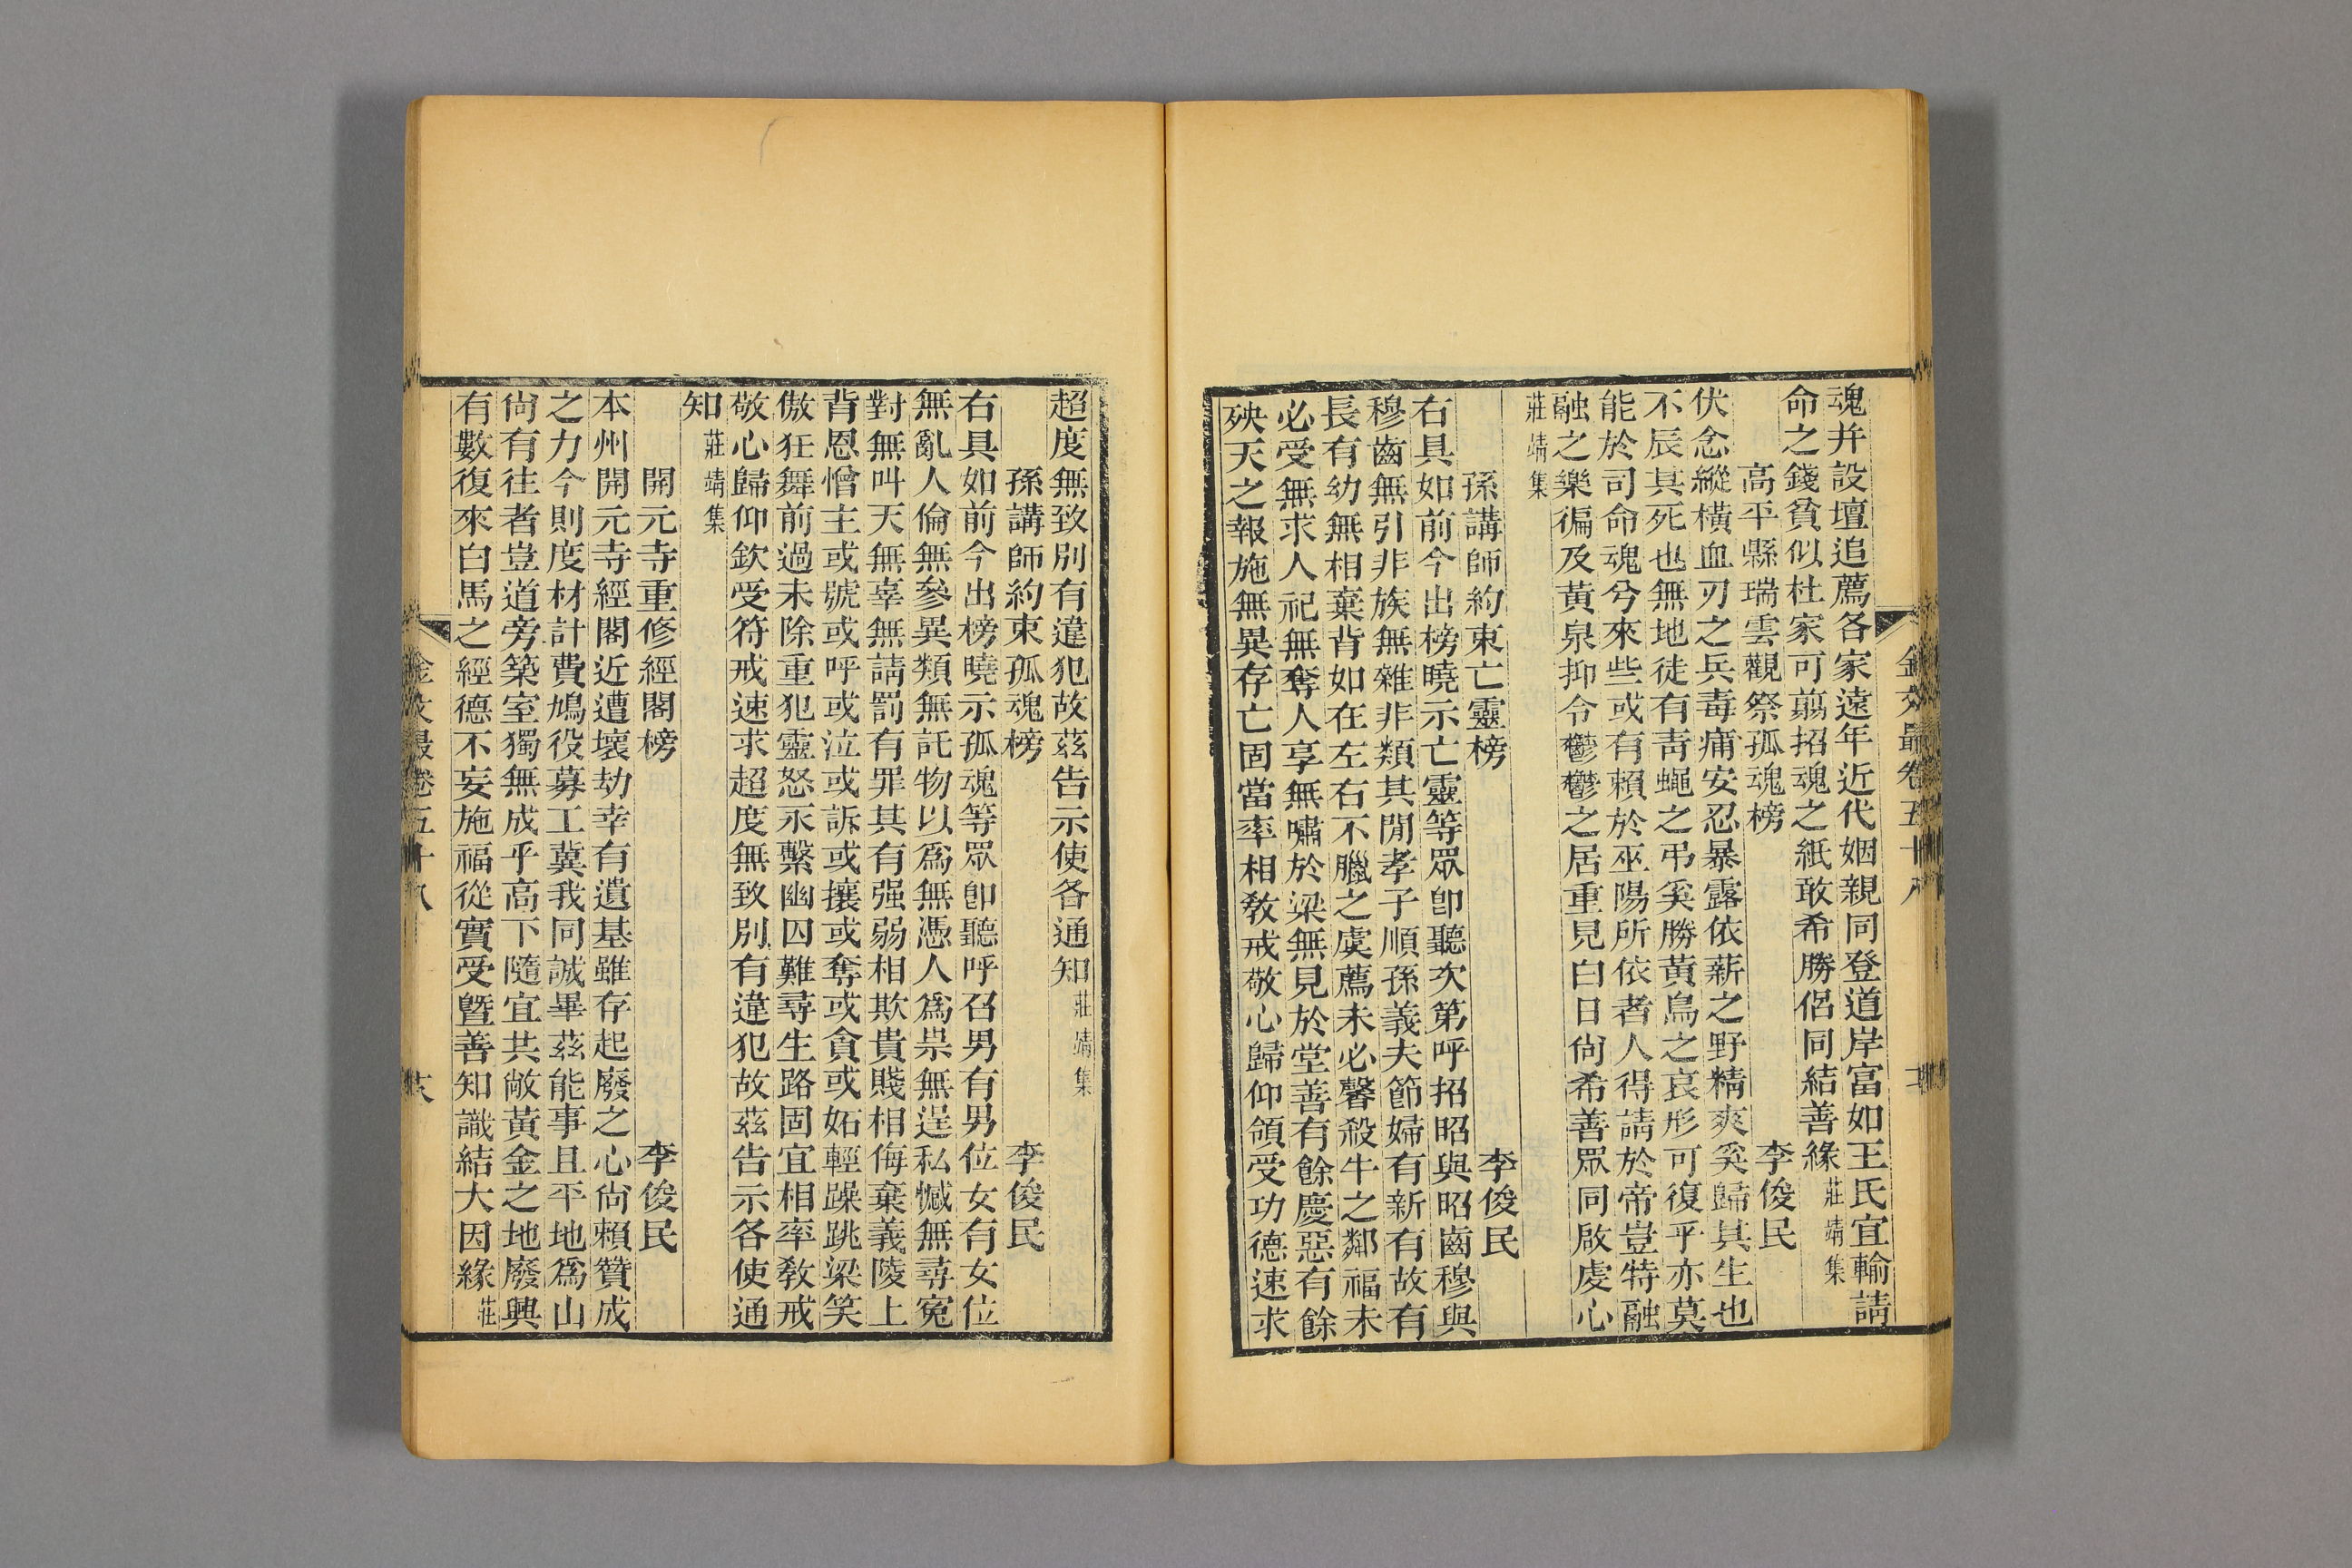 魂并設壇追薦各家遠年近代姻親同登道岸富如王氏宜輸請
命之錢貧似杜家可剪招魂之紙敢希勝侶同結善緣莊靖集
高平縣瑞雲觀祭孤魂榜 李俊民
伏念縱橫血刃之兵毒痡安忍暴露依薪之野精爽奚歸其生也
不辰其死也無地徒有靑蠅之弔奚勝黃鳥之哀形可復乎亦莫
能於司命魂兮來些或有賴於巫陽所依者人得請於帝豈特融
融之樂徧及黃泉抑令鬱鬱之居重見白日尙希善眾同啟虔心
莊靖集
孫講師約束亡靈榜 李俊民
右具如前今出榜曉示亡靈等眾卽聽次第呼招昭與昭齒穆與
穆齒無引非族無雜非類其閒孝子順孫義夫節婦有新有故有
長有幼無相棄背如在左右不臘之虞薦未必馨殺牛之鄰福未
必受無求人祀無奪人享無嘯於梁無見於堂善有餘慶惡有餘
殃天之報施無異存亡固當率相敎戒敬心歸仰領受功德速求
超度無致別有違犯故茲告示使各通知莊靖集
孫講師約束孤魂榜 李俊民
右具如前今出榜曉示孤魂等眾卽聽呼召男有男位女有女位
無亂人倫無參異類無託物以爲無憑人爲祟無逞私憾無尋寃
對無叫天無辜無請罰有罪其有强弱相欺貴賤相侮棄義陵上
背恩憎主或號或呼或泣或訴或攘或奪或貪或妬輕躁跳梁笑
傲狂舞前過未除重犯靈怒永繫幽囚難尋生路固宜相率敎戒
敬心歸仰欽受符戒速求超度無致別有違犯故茲告示各使通
知莊靖集
開元寺重修經閣榜 李俊民
本州開元寺經閣近遭壞劫幸有遺基雖存起廢之心尙賴贊成
之力今則度材計費鳩役募工冀我同誠畢茲能事且平地爲山
尙有往者豈道旁築室獨無成乎高下隨宜共敞黃金之地廢興
有數復來白馬之經德不妄施福從實受曁善知識結大因緣莊
金文最卷五十八